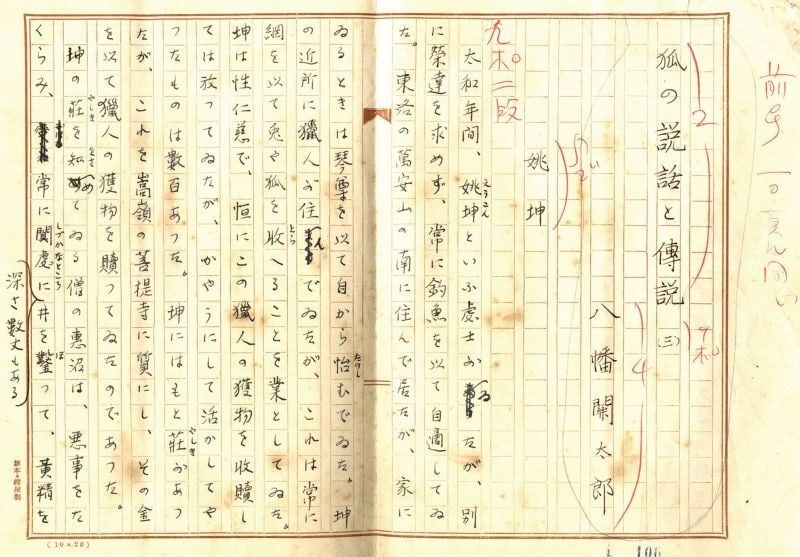 狐の説話と傳説 (三)
八幡關太郎
姚坤
太和年間、姚坤といふ處士がゐたが、別
に榮達を求めず、常に釣魚を以て自適してゐ
た。東洛の萬安山の南に住んで居たが、家に
ゐるときは琴尊を以て自から怡むでゐた。坤
の近所に獵人が住んでゐたが、これは常に
網を以て兎や狐を收へることを業としてゐた。
坤は性仁慈で、恒にこの獵人の獲物を收贖し
ては放つてゐたが、かやうにして活かしてや
つたものは數百あつた。坤にはもと莊があつ
たが、これを嵩嶺の菩提寺に質にし、その金
を以て獵人の獲物を贖つてゐたのであつた。
坤の莊を知めてゐる僧の惠沼は、悪事をた
くらみ、常に閴處に井を鑿つて、黄精を
深さ數丈もある
九ポ二段
2
4
(10×20)
106